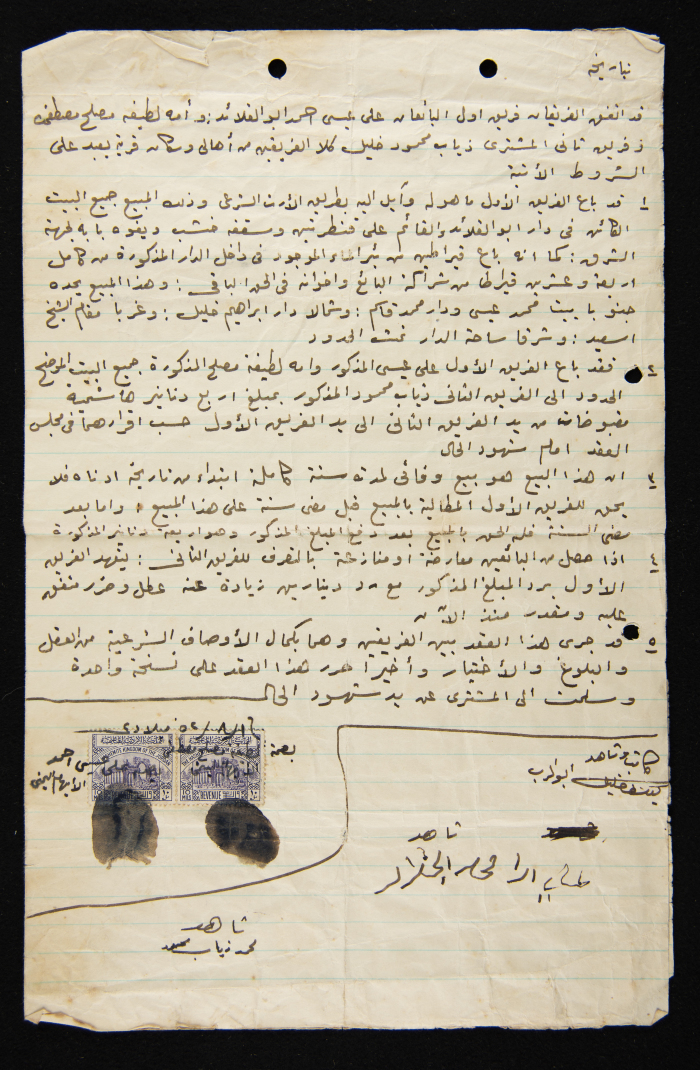 بتاريخه
قد اتفق الفريقان فريق اول البائعان علي عيسى احمد ابو القلائد: وأمه لطيفه مصلح مصطفى
وفريق ثاني المشتري ذياب محمود خليل كلا الفريقين من أهالي وسكان قرية يعبد على
الشروط الأتية
١ قد باع الفريق الأول ما هو له وآيل اليه بطريق الأرث الشرعي وذلك المبيع جميع البيت
الكائن في دار ابو القلائد والقائم على قنطرتين وسقفه خشب ويفوه بابه لجهة
الشرق: كما انه باع قيراطين من بئر الماء الموجود في داخل الدار المذكورة من كامل
اربعة وعشرين قيراطا من شراكة البائع واخوانه في الحق الباقي: وهذا المبيع يحده
جنوبا بيت محمد عيسى ودار محمد قاسم: وشمالا دار ابراهيم خليل: وغربا مقام الشيخ
اسعيد: وشرقا ساحة الدار تمت الحدود
٢ فقد باع الفريق الأول علي عيسى المذكور وامه لطيفة مصلح المذكورة جميع البيت الموضح
الحدود الى الفريق الثاني ذياب محمود المذكور بمبلغ اربع دنانير هاشمية
مقبوضات من يد الفريق الثاني الى يد الفريق الأول حسب اقرارهما في مجلس
العقد امام شهود الحال
٣ ان هذا البيع هو بيع وفائي لمدة سنة كاملة ابتداء من تاريخه ادناه فلا
يحق للفريق الأول المطالبة بالمبيع قبل مضي سنة على هذا المبيع واما بعد
مضي السنة فله الحق بالمبيع بعد دفع المبلغ المذكور وهو اربعة دنانير المذكورة
٤ اذا حصل من البائعين معارضة او منازعة بالتصرف للفريق الثاني: يتعهد الفريق
الأول برد المبلغ المذكور مع رد دينارين زيادة عنه عطل وضرر متفق
عليه ومقدر منذ الآن
٥ قد جرى هذا العقد بين الفريقين وهما بكمال الأوصاف الشرعية من العقل
والبلوغ والأختيار وأخيرا حرر هذا العقد على نسخة واحدة
وسلمت الى المشتري عن يد شهود الحال
٥٢ ميلادي
بصمة
عيسى احمد
KINGDOM OF THE
REVENUE
MILS
كاتبه وشاهد
ابو الرب
شاهد
شاهد
محمد ذياب محمود